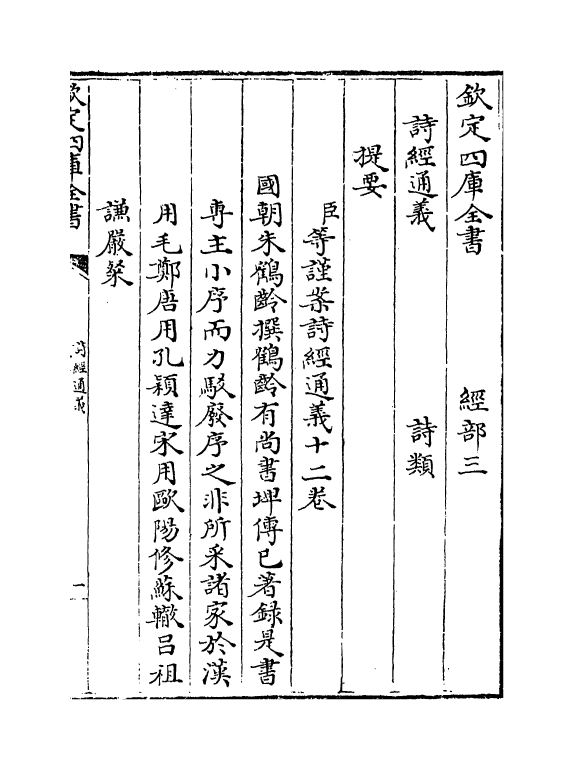 欽定四庫全書　經部三
詩經通義　詩類
提要
臣等謹案詩經通義十二卷
國朝朱鶴齡撰鶴齡有尚書埤傳已著録是書
専主小序而力駁廢序之非所采諸家於漢
用毛鄭唐用孔穎達宋用歐陽修蘇轍吕祖
謙嚴粲
欽定四庫全書
詩經通義
一